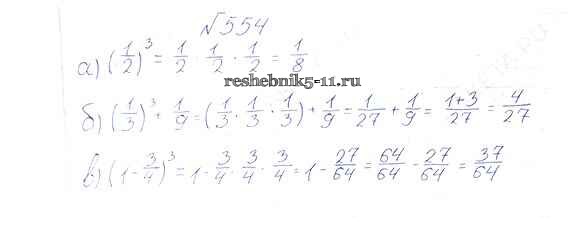 №554
а) (1/2)³ = 1/2 · 1/2 · 1/2 = 1/8
reshebnik5-11.ru
б) (1/3)³ + 1/9 = (1/3 · 1/3 · 1/3) + 1/9 = 1/27 + 1/9 = 1+3/27 = 4/27
в) (1 - 3/4)³ = 1 - 3/4 · 3/4 · 3/4 = 1 - 27/64 = 64/64 - 27/64 = 37/64